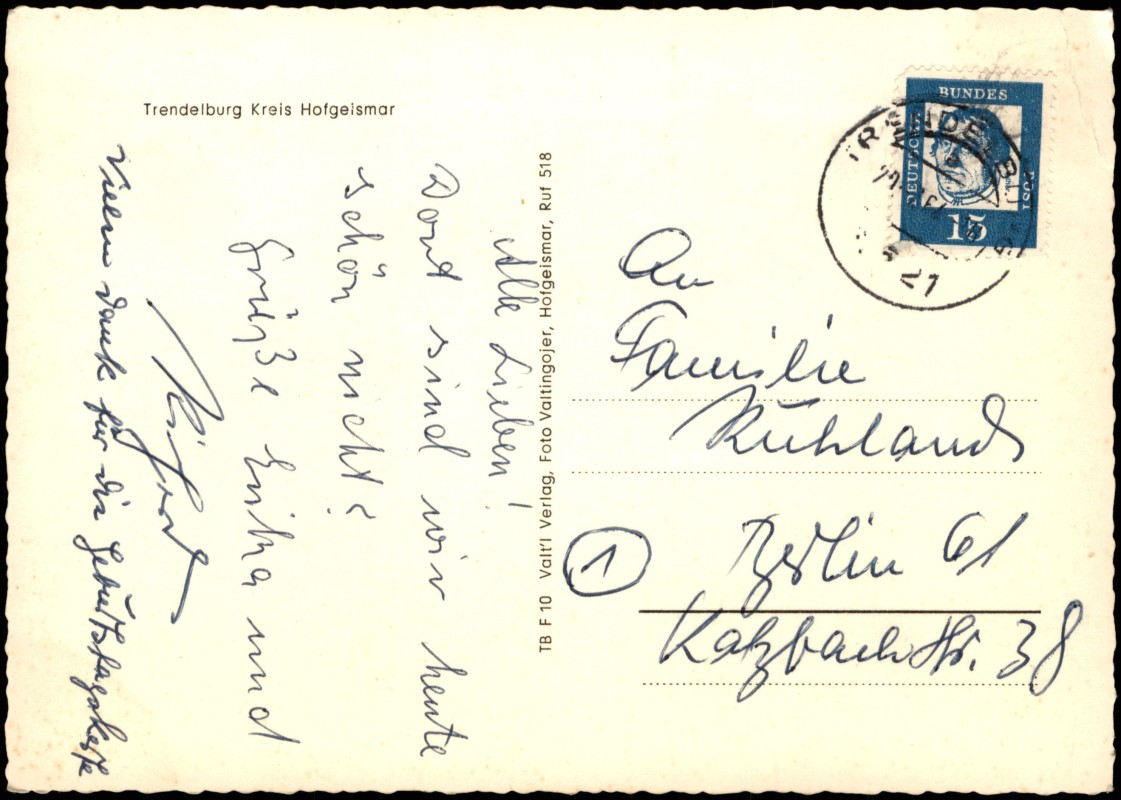 Trendelburg Kreis Hofgeismar
Alle Lieben!
Dort sind wir heute
schön nicht?
Grüße Erika und
Vielen Dank für die Geburtstagskarte
TB F 10 Valt'l Verlag, Foto Valtingojer, Hofgeismar, Ruf 518
DEUTSCHE
BUNDES
POST
15
TRENDELBURG
An
Familie
Kühland
1
Berlin 61
Katzbachstr. 38